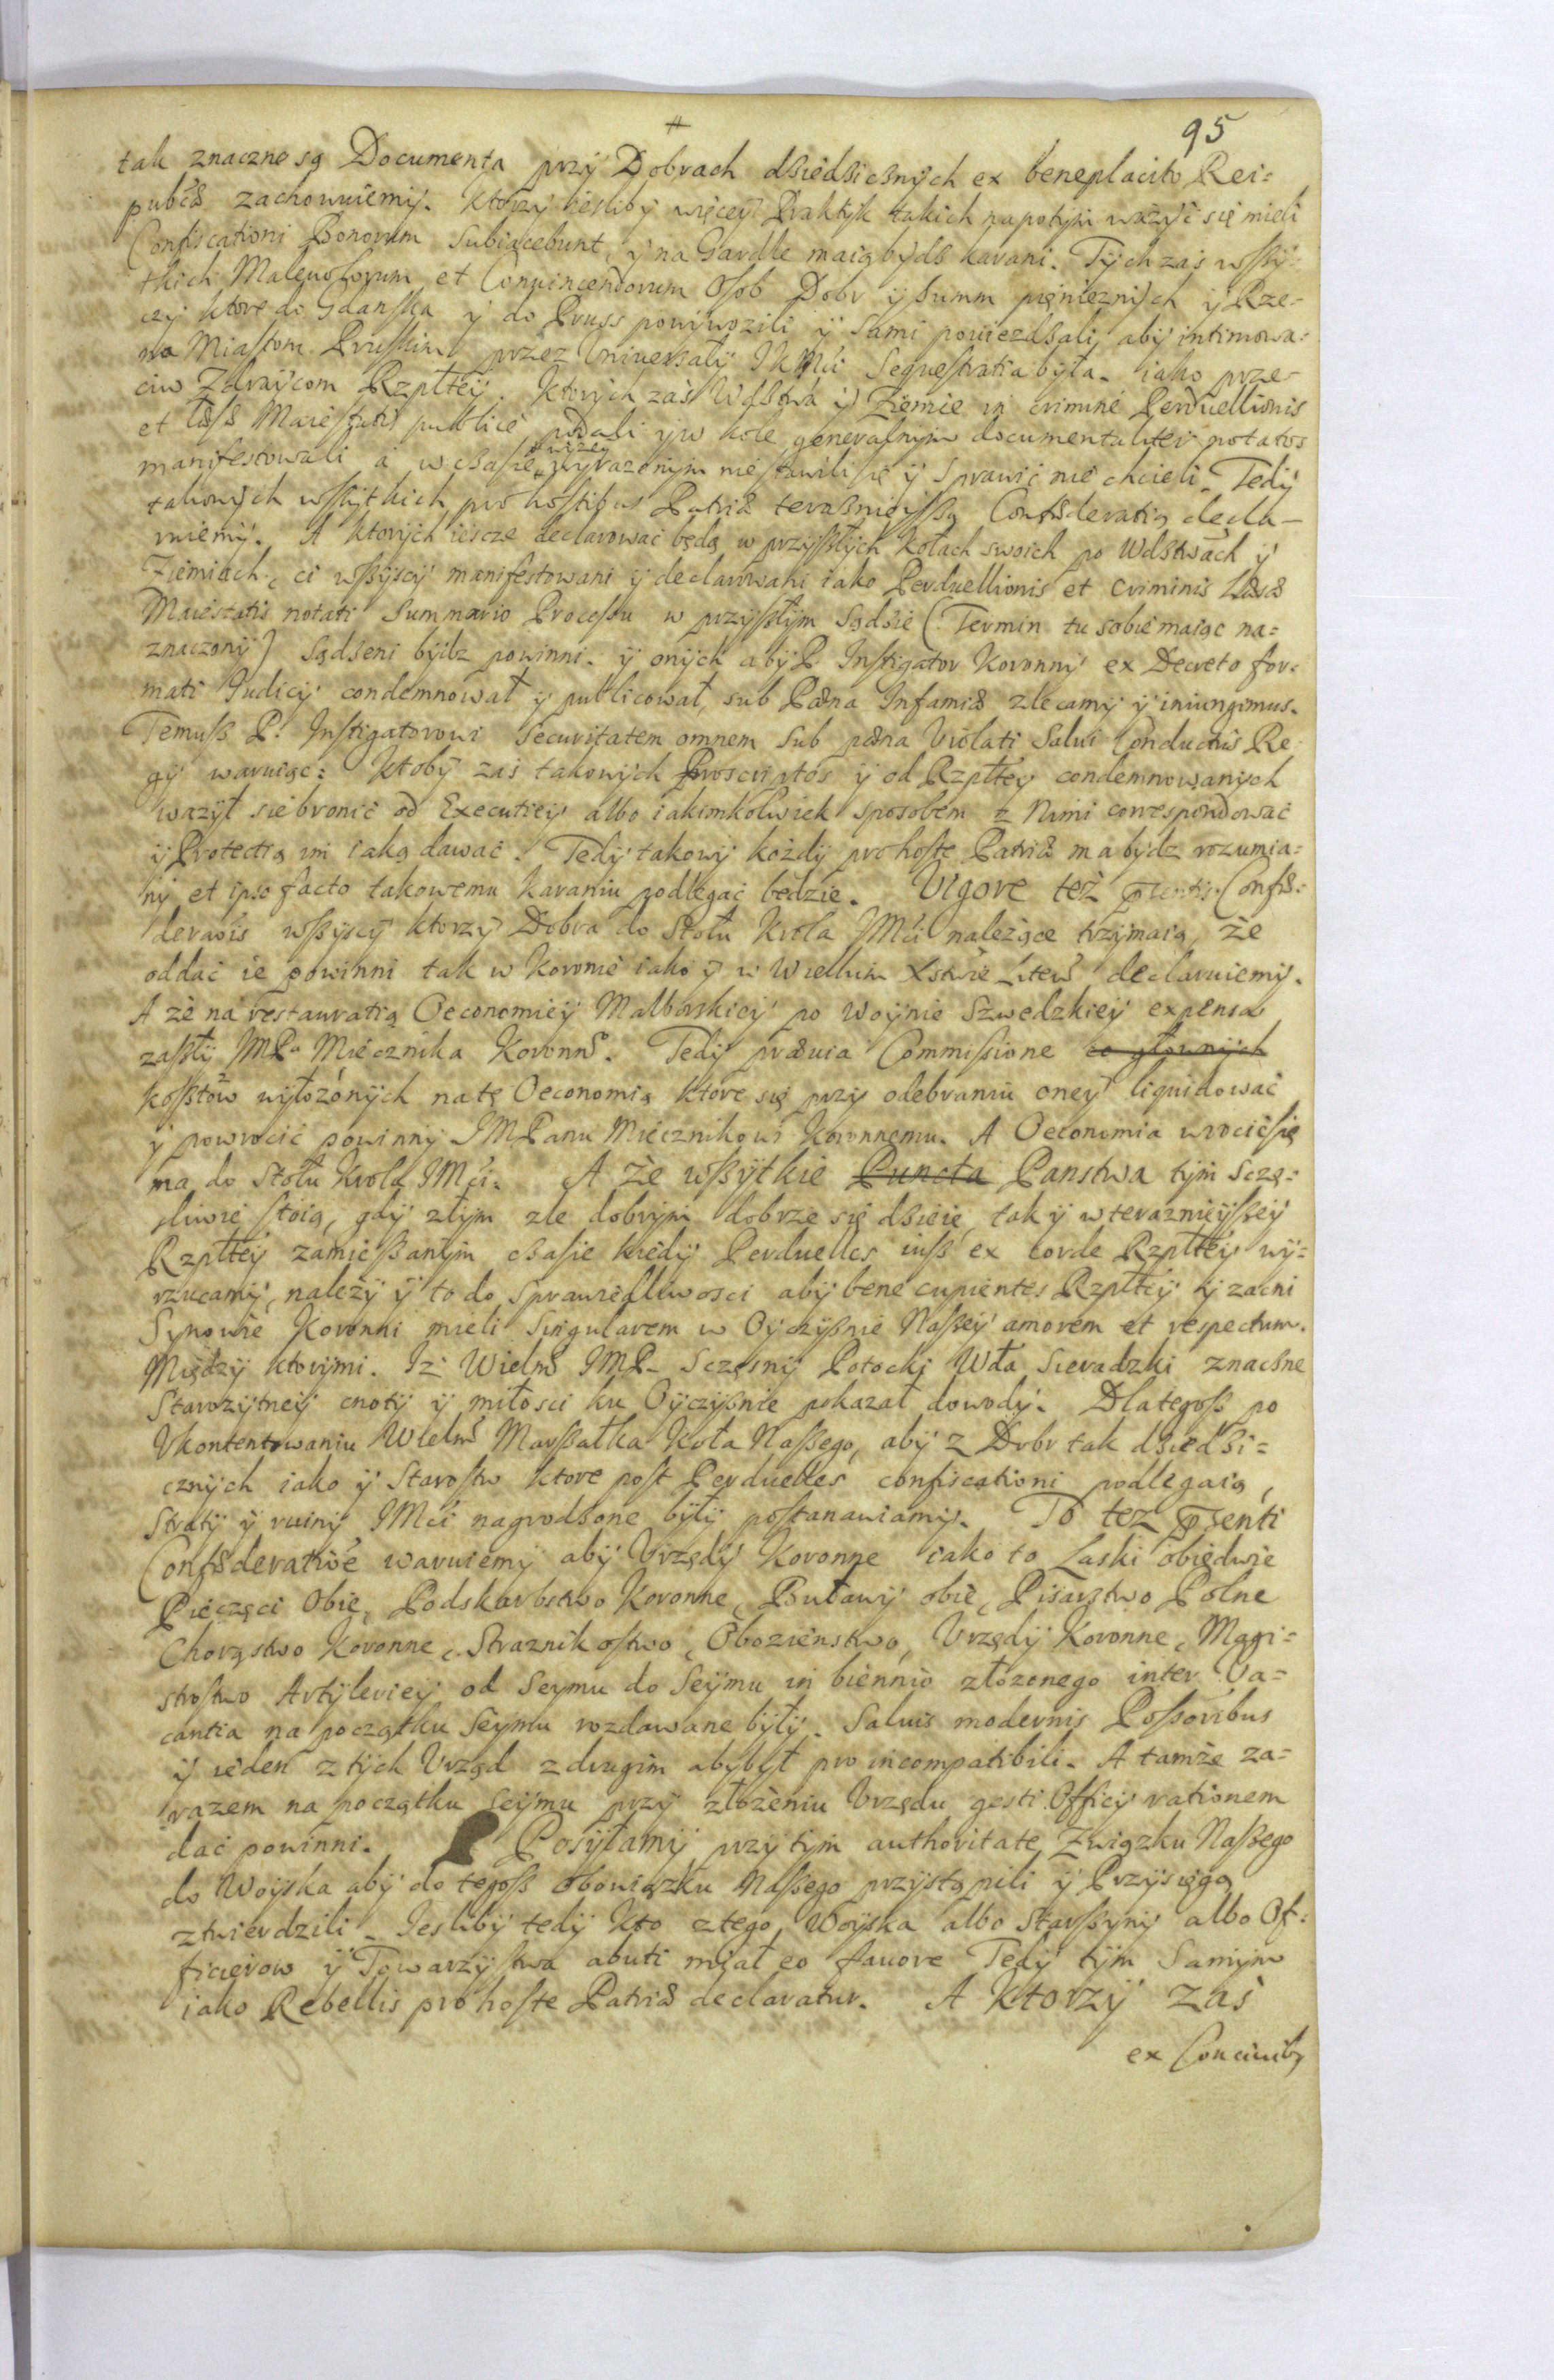 95
tak znaczne są Documenta przy Dobrach dßiedßicßnych ex beneplacito Rei=
publ zachowuiemy. Ktorzy iesliby więcey Praktyk takich napotym ważyć się mieli
Confiscationi Bonorum subiacebunt, y na Gardle maią bydß karani. Tych zaś wßy=
tkich Maleuolorum et Conuincendorum Osob Dobr y Summ pięnieznych y Rze=
czy ktore do Gdanska y do Pruss powywozili y sami powiezdßali, aby intimowa=
na Miastom Pruskim przez Vniuersały JKMći Sequestratia była. iako prze=
ciw Zdraycom Rzpltey. Ktorych zaś Wdßtwa y Ziemie in crimine Perduellionis
et læsæ Maiestatis publice podali y w kole generalnym documentaliter notatos
manifestowali a w cßasie wyżey wyrazonym nie stawili się y sprawić nie chcieli. Tedy
takowych wßytkich pro hostibus Patriæ teraßnieyßą Confœderatią decla=
ruiemy. A ktorych iescze declarować będą w przyßłych kołach swoich po Wdßtwach y
Ziemiach, ci wßyscy manifestowani y declarowani iako Perduellionis et Criminis Læsæ
Maiestatis notati summario Processu w przyßłym Sądßie (Termin tu sobie maiąc na=
znaczony) sądßeni bydz powinni. y onych aby P. Instigator Koronny ex Decreto for=
mati Judicij condemnował y publicował, sub Pœna Infamiæ zlecamy y iniungimus.
Temuß P. Instigatorowi securitatem omnem sub pœna Violati Salui Conductus Re
gij waruiąc: Ktoby zaś takowych Proscriptos y od Rzpltey condemnowanych
ważył sie bronić od Executiey albo iakimkolwiek sposobem z nimi correspondować
y Protectią im iaką dawać. Tedy takowy każdy pro hoste Patriæ ma bydz rozumia=
ny et ipso facto takowemu karaniu podlegać będzie. Vigore też pntis Confœ=
derationis wßyscy ktorzy Dobra do stołu Krola JMći należące trzymaią, że
oddać ie powinni tak w Koronie iako y w Wielkim Xstwie Litew declaruiemy.
A że na restauratią Oeconomiey Malborskiey po woynie Szwedzkiey expensa
zaßły JMP Miecznika Koronn. Tedy præuia Commissione co głownych
kosßtow wyłożonych na tę Oeconomią ktore się przy odebraniu oney liquidować
y powrocić powinny JMPanu Miecznikowi Koronnemu. A Oeconomia wrocić się
ma do Stołu Krola JMći. A że wßytkie Puncta Panstwa tym sczę=
sliwie stoią, gdy złym zle dobrym dobrze się dßieie, tak y w teraznieyßey
Rzpltey zamießanym cßasie kiedy Perduelles iuß ex corde Rzpltey wy=
rzucamy, należy y to do sprawiedliwosci aby bene cupientes Rzpltey y zacni
Synowie Koronni mieli singularem w Oyczyßnie Naßey amorem et respectum.
Między ktorymi. Iż Wielm JMP. Sczęsny Potocki Wda Sieradzki znacßne
Starożytney cnoty y miłosci ku Oyczyßnie pokazał dowody. Dlategoß po
Vkontentowaniu Wielm Marßałka Koła Naßego, aby z Dobr tak dßiedßi=
cznych iako y Starostw ktore post Perduelles confiscationi podlegaią,
straty y ruiny JMći nagrodßone były postanawiamy. To też pręsenti
Confœderatione waruiemy aby Vrzędy Koronne iako to Laski obiedwie
Pieczęci Obie, Podskarbstwo Koronne, Buławy obie, Pisarstwo Polne
Chorąstwo Koronne, Straznikostwo, Obozienstwo, Vrzędy Koronne, Magi=
strostwo Artyleriey od Seymu do Seymu in biennio złożonego inter Va=
cantia na początku Seymu rozdawane były. Saluis modernis Possoribus
y ieden z tych Vrząd z drugim aby był pro incompatibili. A tamże za=
razem na początku Seymu przy złożeniu Vrzędu gesti Officij rationem
dać powinni. Posyłamy przy tym authoritate Związku Naßego
do Woyska aby do tegoß obowiązku Naßego przystąpili y Przysięgą
ztwierdzili. Iesliby tedy kto z tego Woyska albo Starßyny albo Of=
ficierow y Towarzystwa abuti miał eo fauore Tedy tym samym
iako Rebellis pro hoste Patriæ declaratur. A Ktorzy zaś
ex Conciuib9